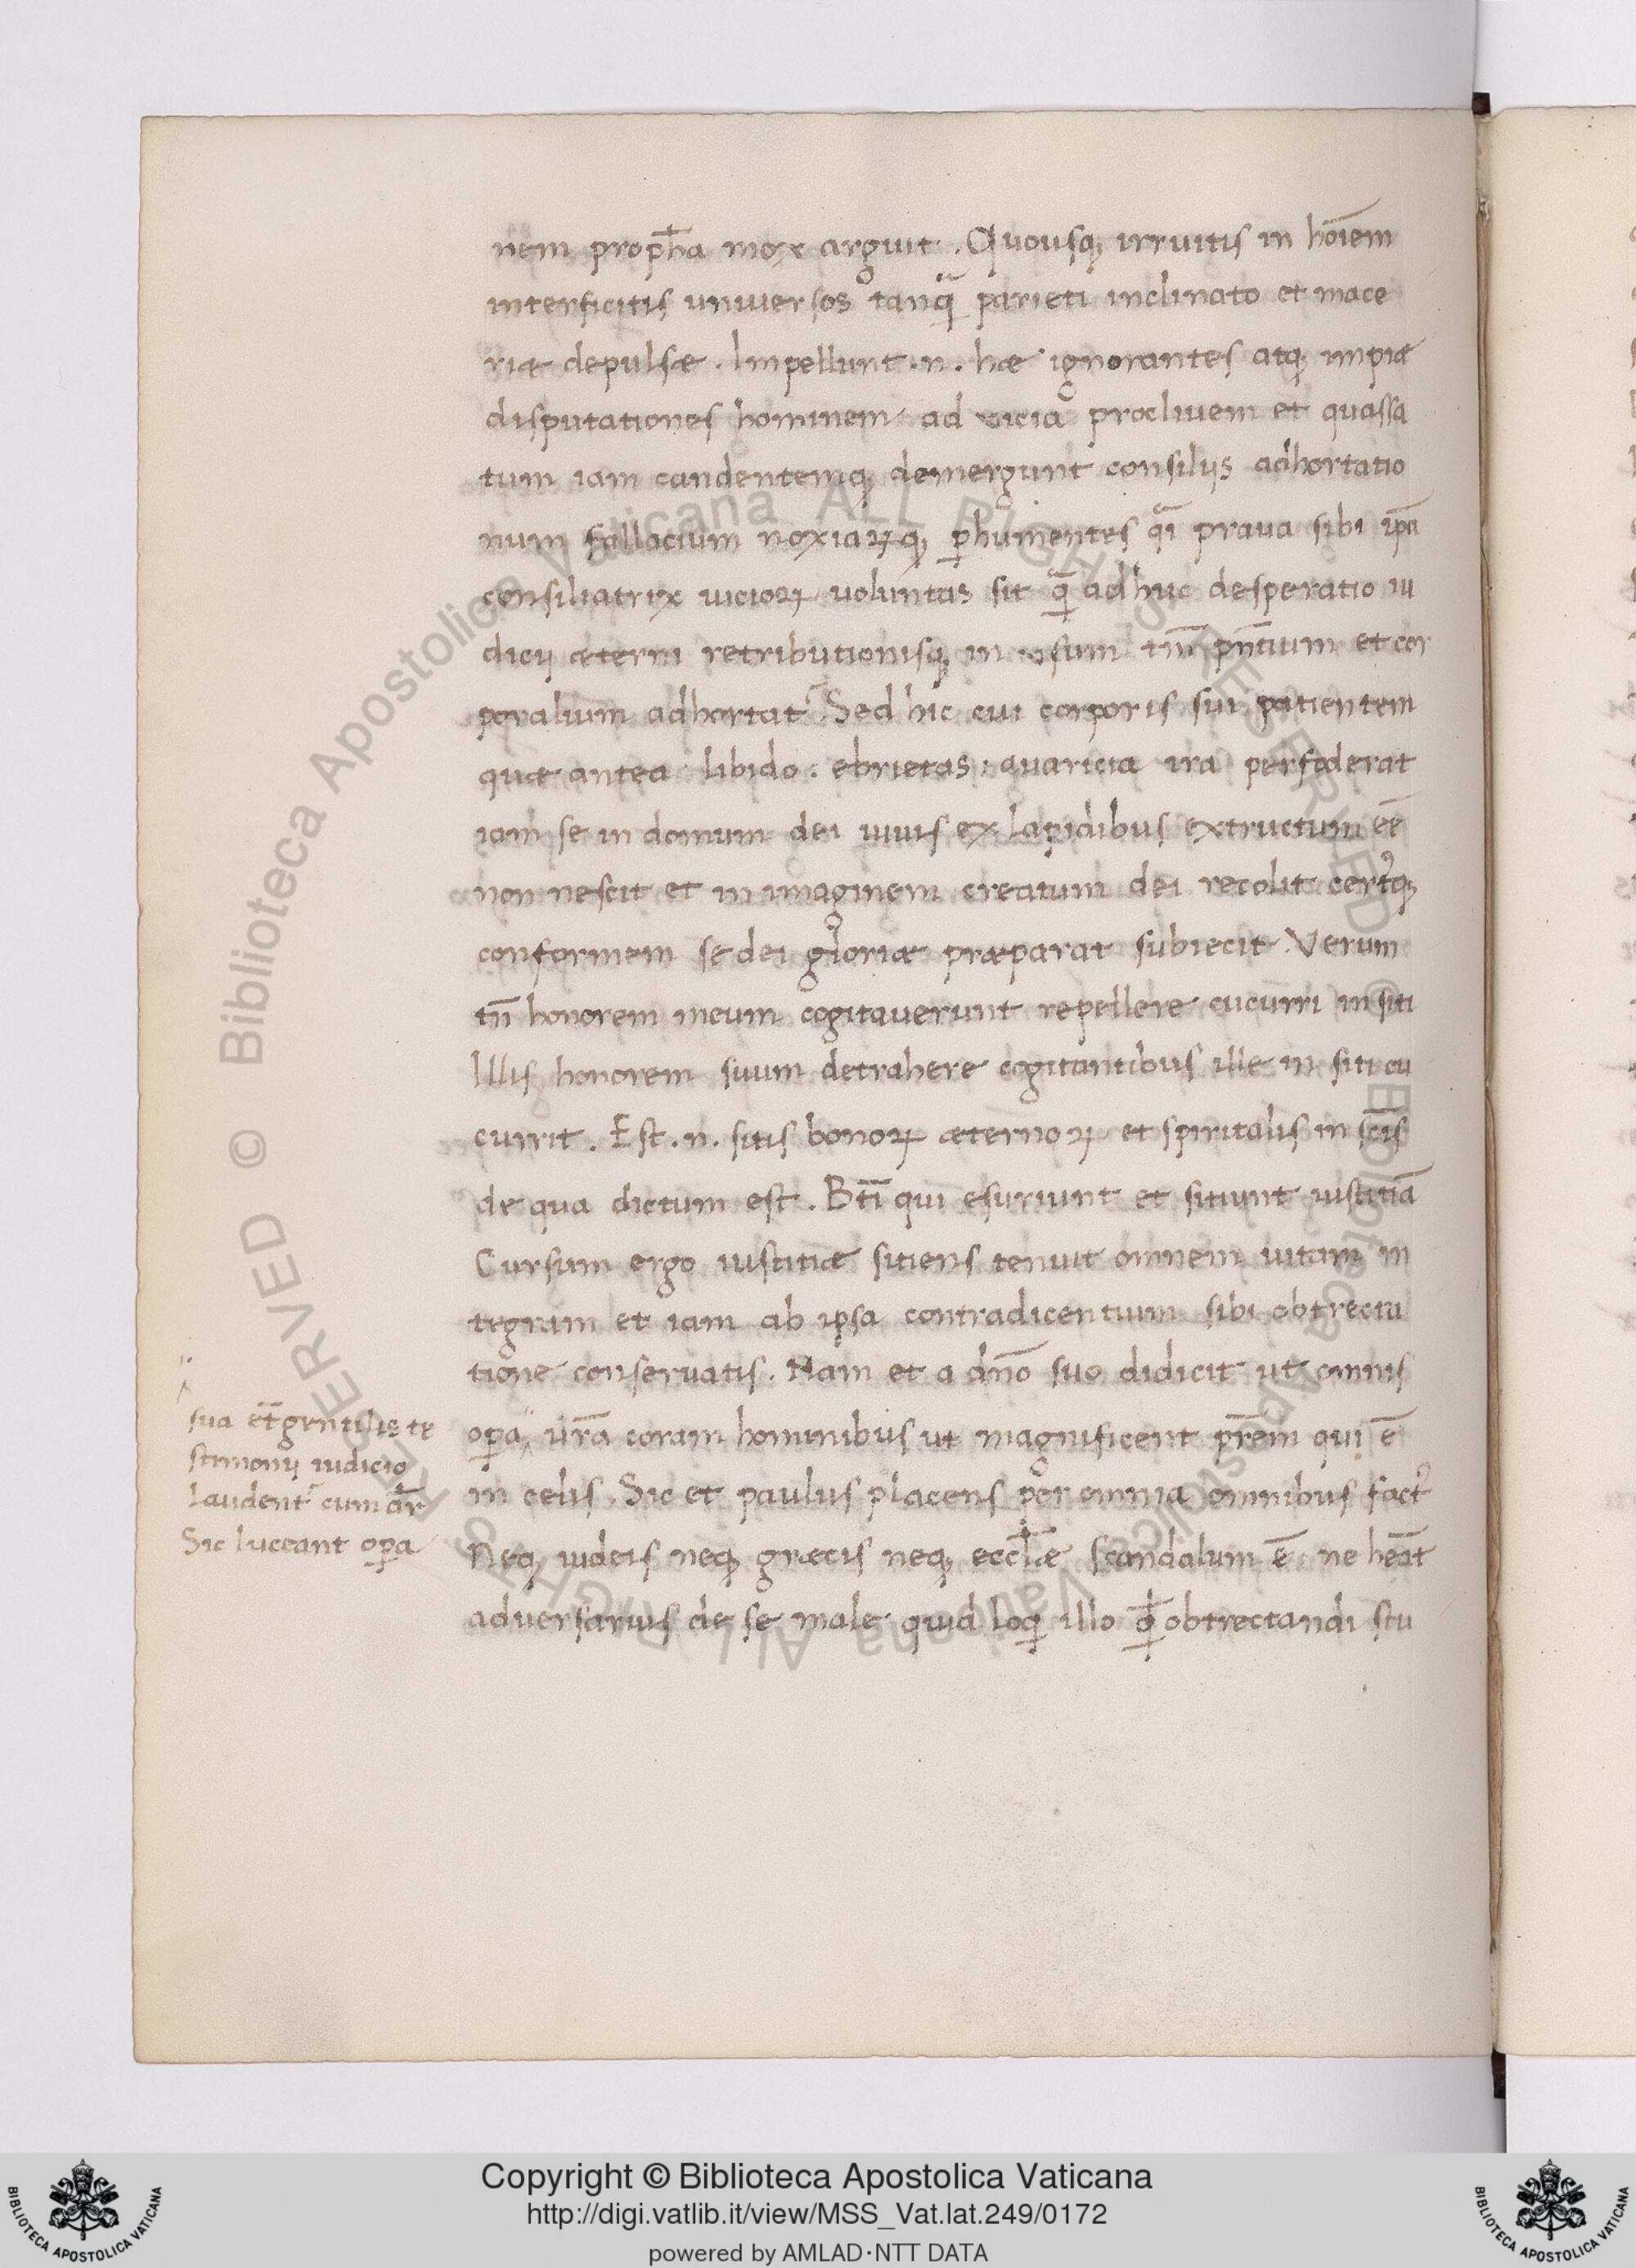 nem prop̄ha mox arguit. Quousq; irruitis in hoīem
interficitis uniuersos tanq̄ parieti inclinato et mace
riæ depulsæ. Impellunt .n. hæ ignorantes atq; impiæ
disputationes hominem ad uicia procliuem et quassa
tum iam candentemq; demergunt consilijs adhortatio
num fallacium noxiaꝝq; ꝑhumentes q̄i praua sibi ip̄a
consiliatrix uicioꝝ uoluntas sit q̄ adhuc desperatio iu
dicij æterni retributionisq; in usum tm̄ pn̄tium et cor
poralium adhortat᷑. Sed hic cui corporis sui patientem
quæ antea libido. ebrietas. auaricia ira perfoderat
iam se in domum dei uiuis ex lapidibus extructum eē
non nescit et in imaginem creatum dei recolit certꝰq;
conformem se dei gloriæ præparat subiecit. Verum
tn̄ honorem meum cogitauerunt repellere cucurri in siti
Illis honorem suum detrahere cogitantibus ille in siti cu
currit. Est .n. sitis bonoꝝ æternoꝝ et spiritalis in sc̄is
de qua dictum est. Bt̄i qui esuriunt et sitiunt iustitiā
Cursum ergo iustitiæ sitiens tenuit omnem uitam in
tegram et iam ab ipsa contradicentium sibi obtrecta
tione conseruatis. Nam et a dn̄o suo didicit ut omnis
sua et̄ gentilis te
stimonij iudicio
laudent᷑ cum dr̄
Sic luceant oꝑa
oꝑa ur̄a coram hominibus ut magnificent pr̄em qui ē
in celis. Sic et paulus placens per omnia omnibus factꝰ
Neq; iudeis neq; græcis neq; eccl̄iæ scandalum ē ne heāt
aduersarius de se male quid loqi illo obtrectandi stu
Copyright © Biblioteca Apostolica Vaticana
http://digi.vatlib.it/view/MSS_Vat.lat.249/0172
powered by AMLAD·NTT DATA
BIBLIOTECA APOSTOLICA VATICANA
BIBLIOTECA APOSTOLICA VATICANA